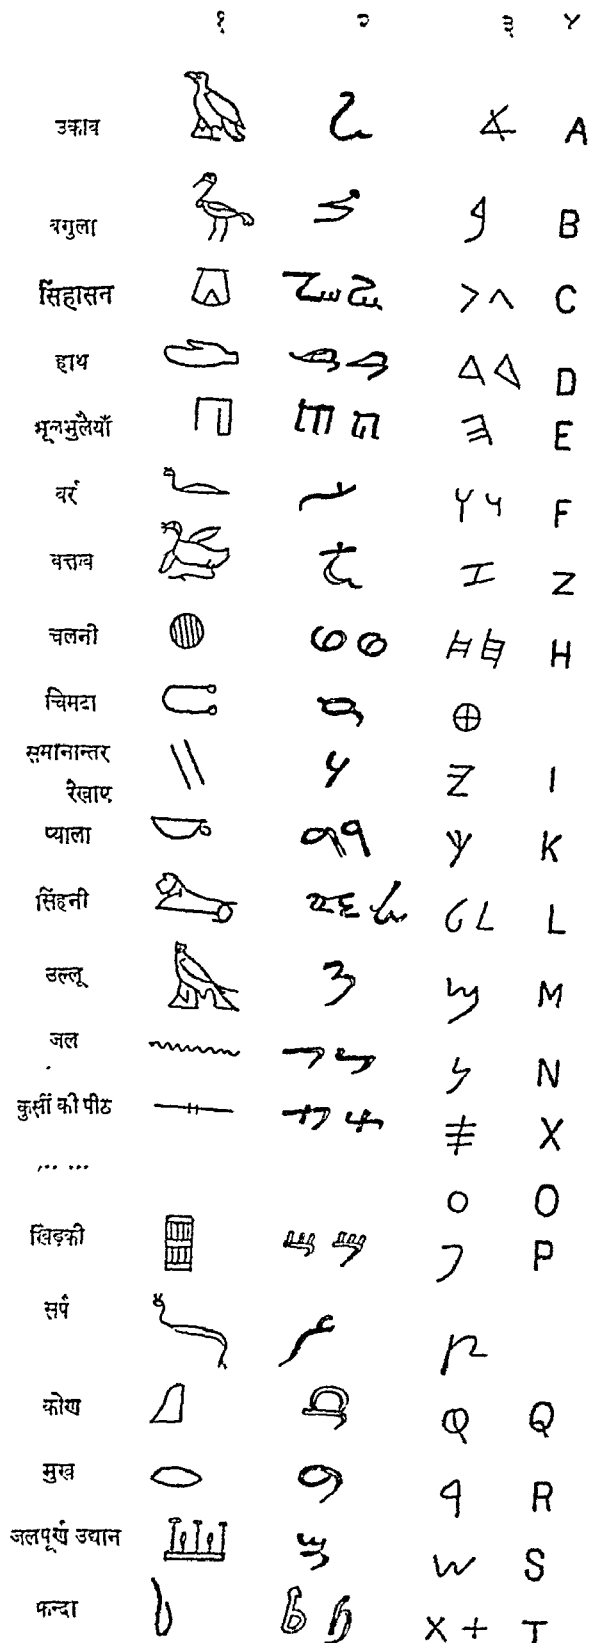 १ २ ३ ४
उकाब A
बगुला B
सिंहासन C
हाथ D
भूलभुलैयाँ E
बर्र F
बत्तख Z
चलनी H
चिमटा
समानान्तर
रेखाएं I
प्याला K
सिंहनी L
उल्लू M
जल N
कुर्सी की पीठ X
... ...
O
खिड़की P
सर्प
कोण Q
मुख R
जलपूर्ण उद्यान S
फन्दा T